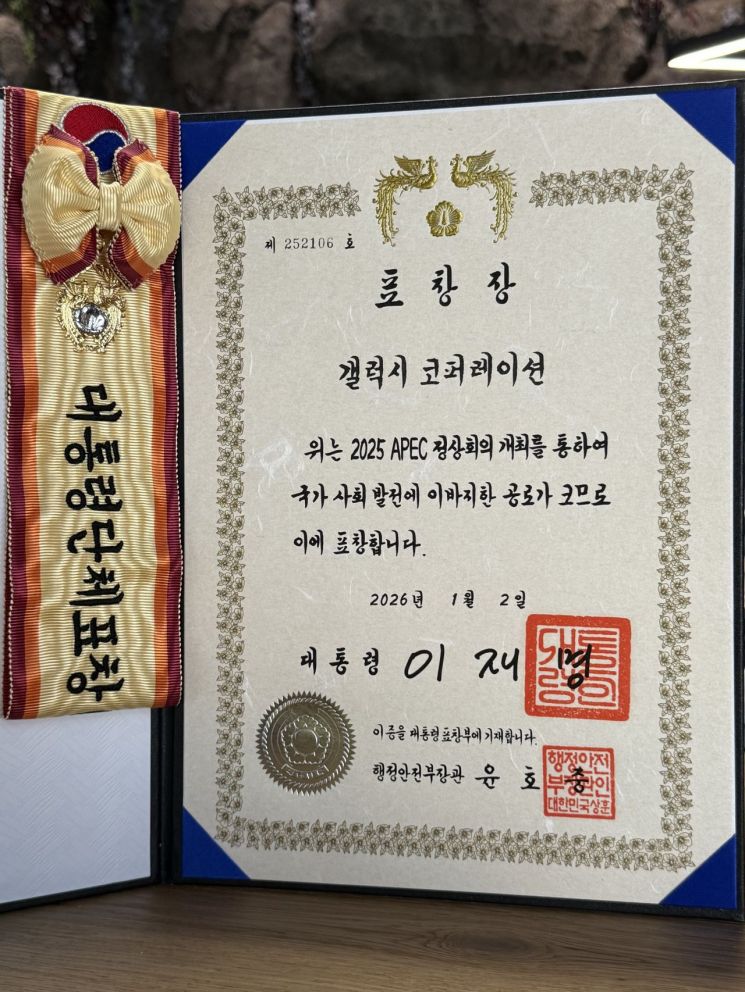 대통령단체표창
제 252106 호
표창장
갤럭시 코퍼레이션
위는 2025 APEC 정상회의 개최를 통하여
국가 사회 발전에 이바지한 공로가 크므로
이에 표창합니다.
2026년 1월 2일
대통령 이재명
대통령의인
이 증을 대통령표창부에 기재합니다.
행정안전부장관 윤호중
행정안전
부장관인
대한민국상훈